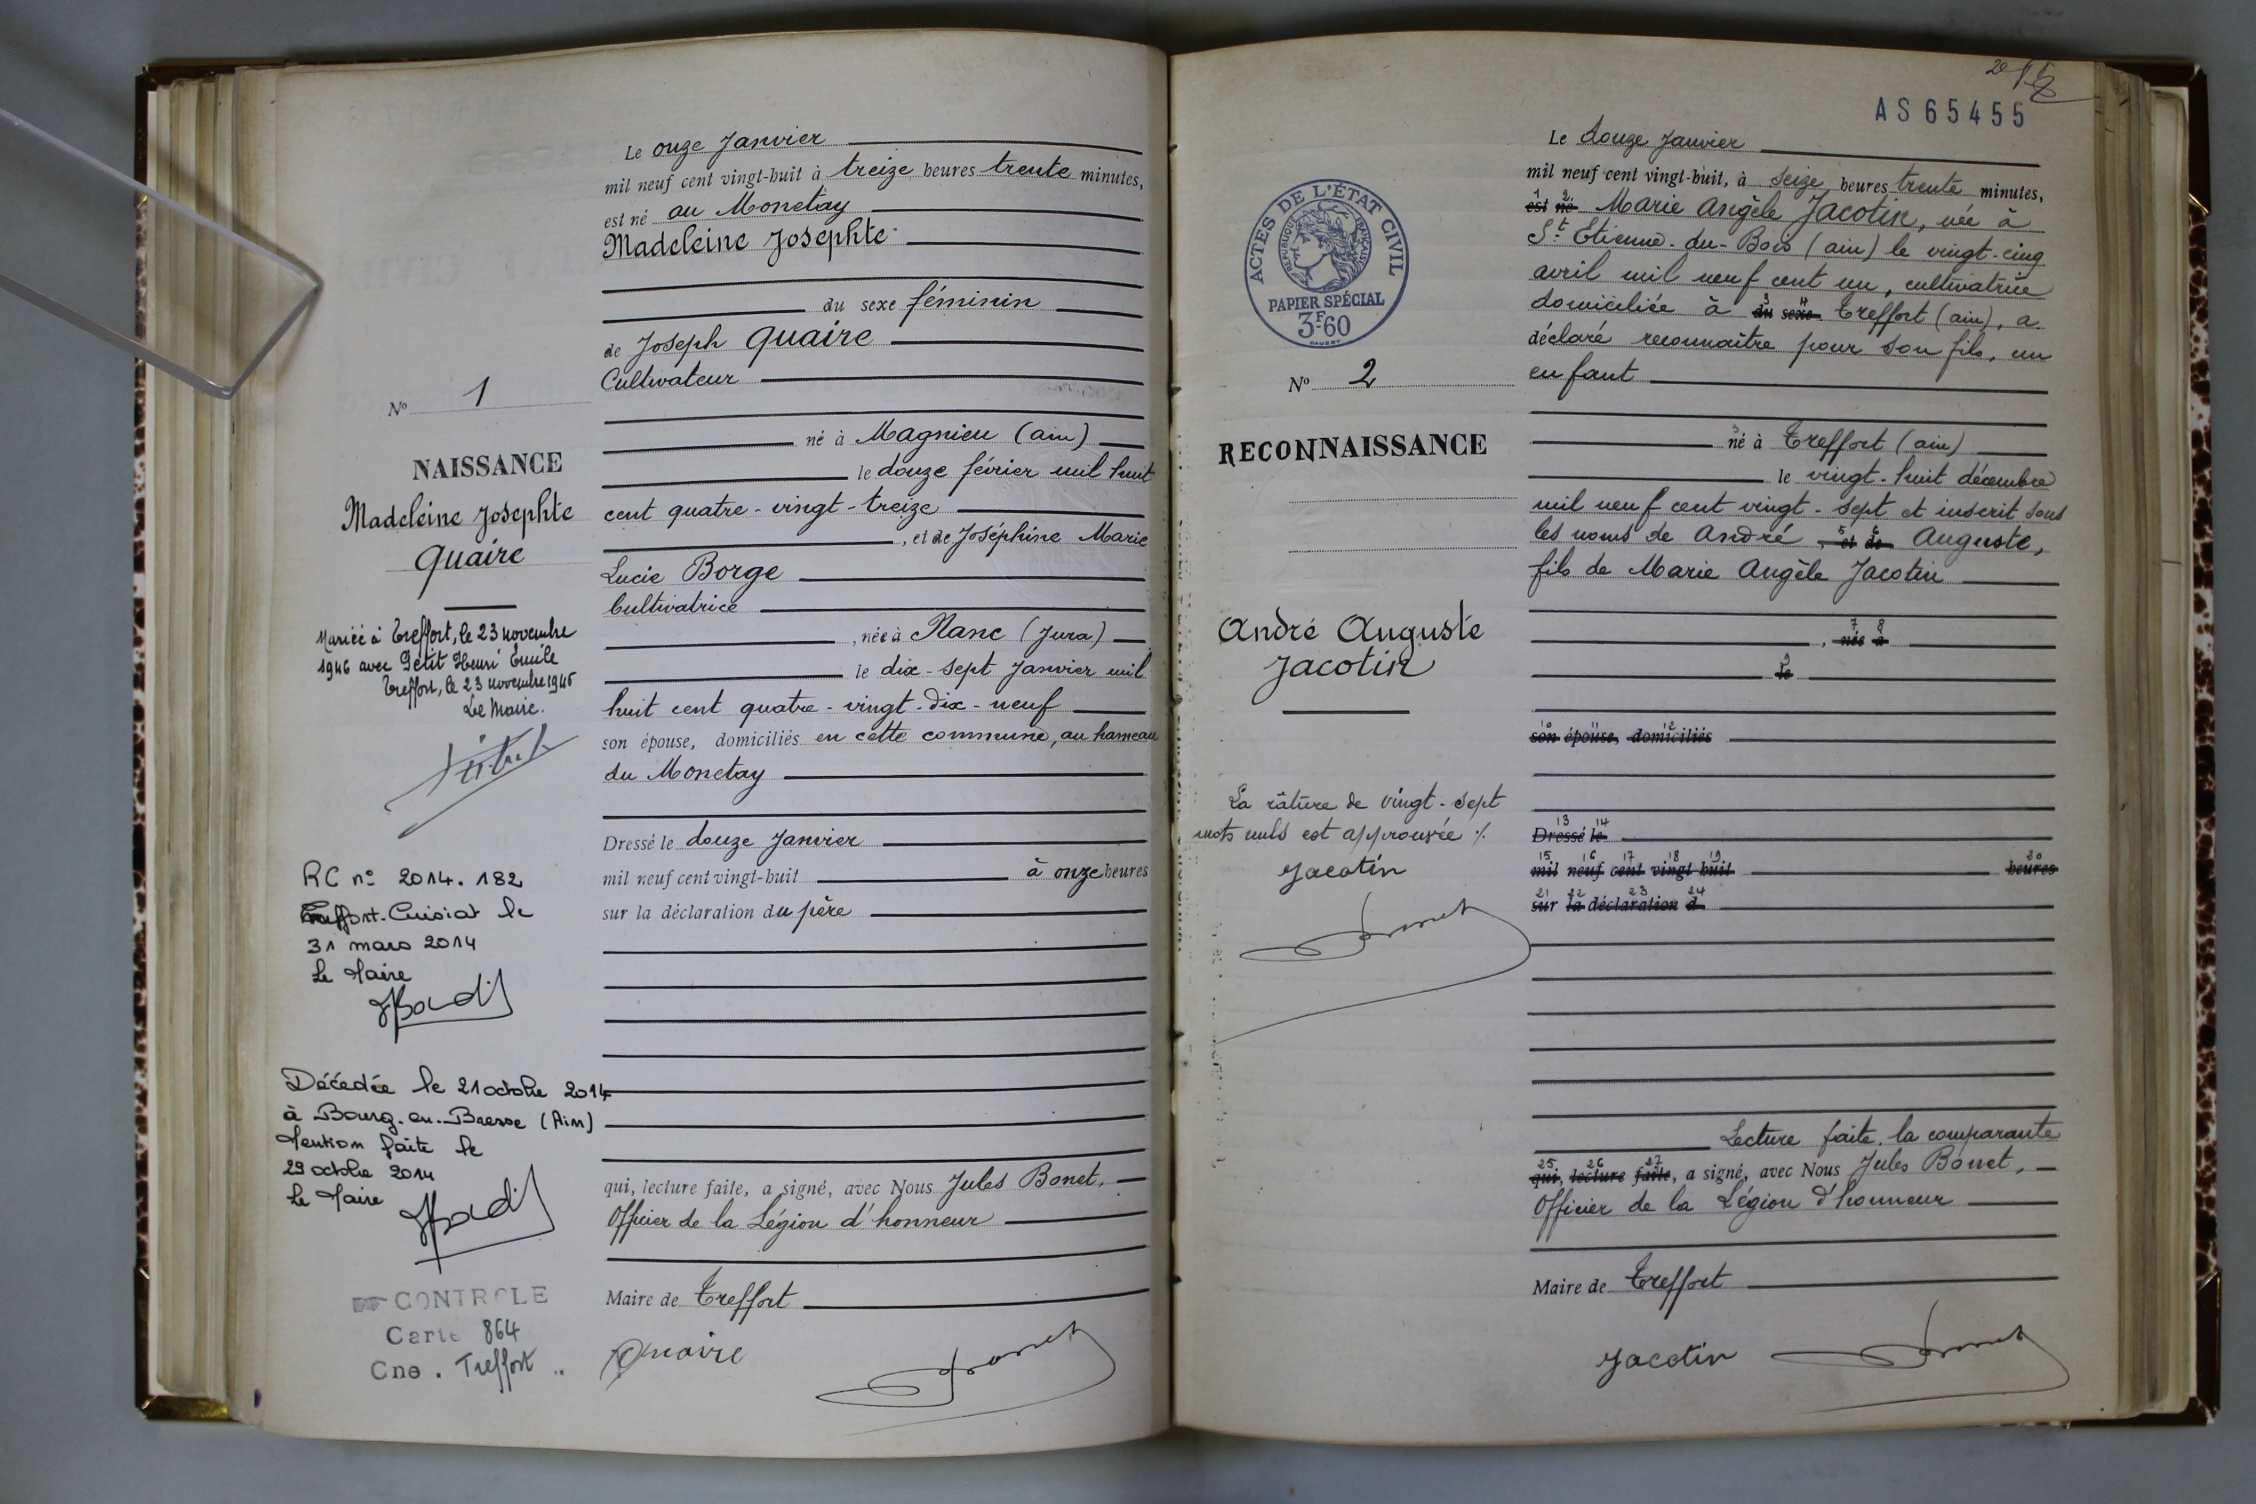 Le onze Janvier
mil neuf cent vingt-huit à treize heures trente minutes,
est né au Monetay
Madeleine Josephte
du sexe féminin
de Joseph Quaire
Cultivateur
né à Magnieu (Ain)
le douze février mil huit
cent quatre-vingt-treize
, et de Joséphine Marie
Lucie Borge
Cultivatrice
, née à Nanc (Jura)
le dix-sept Janvier mil
huit cent quatre-vingt-dix-neuf
son épouse, domiciliés en cette commune, au hameau
du Monetay
Dressé le douze Janvier
mil neuf cent vingt-huit à onze heures
sur la déclaration du père
qui, lecture faite, a signé, avec Nous Jules Bonet,
Officier de la Légion d'honneur
Maire de Treffort
Quaire
No 1
NAISSANCE
Madeleine Josephte
Quaire
Mariée à Treffort, le 23 novembre
1946 avec Petit Henri Emile
Treffort, le 23 novembre 1946
Le Maire.
RC no 2014.182
Treffort-Cuisiat le
31 mars 2014
Le Maire
Décédée le 21 octobre 2014
à Bourg-en-Bresse (Ain)
Mention faite le
29 octobre 2014
Le Maire
CONTROLE
Carte 864
Cne. Treffort
AS65455
ACTES DE L'ÉTAT CIVIL
RÉPUBLIQUE FRANÇAISE
PAPIER SPÉCIAL
3F60
No 2
RECONNAISSANCE
André Auguste
Jacotin
La râture de vingt-sept
mots nuls est approuvée
Jacotin
Le douze Janvier
mil neuf cent vingt-huit, à seize heures trente minutes,
1 2
est né Marie Angèle Jacotin, née à
St Etienne-du-Bois (Ain) le vingt-cinq
avril mil neuf cent un, cultivatrice
3 4
domiciliée à du sexe Treffort (Ain), a
déclaré reconnaître pour son fils, un
enfant
né à Treffort (Ain)
le vingt-huit décembre
mil neuf cent vingt-sept et inscrit sous
5 6
les noms de André, et de Auguste,
fils de Marie Angèle Jacotin
7 8
, née à
9
le
10 11 12
son épouse, domiciliés
13 14
Dressé le
15 16 17 18 19 20
mil neuf cent vingt-huit heures
21 22 23 24
sur la déclaration d
Lecture faite, la comparante
25 26 27
qui, lecture faite, a signé, avec Nous Jules Bonet,
Officier de la Légion d'honneur
Maire de Treffort
Jacotin